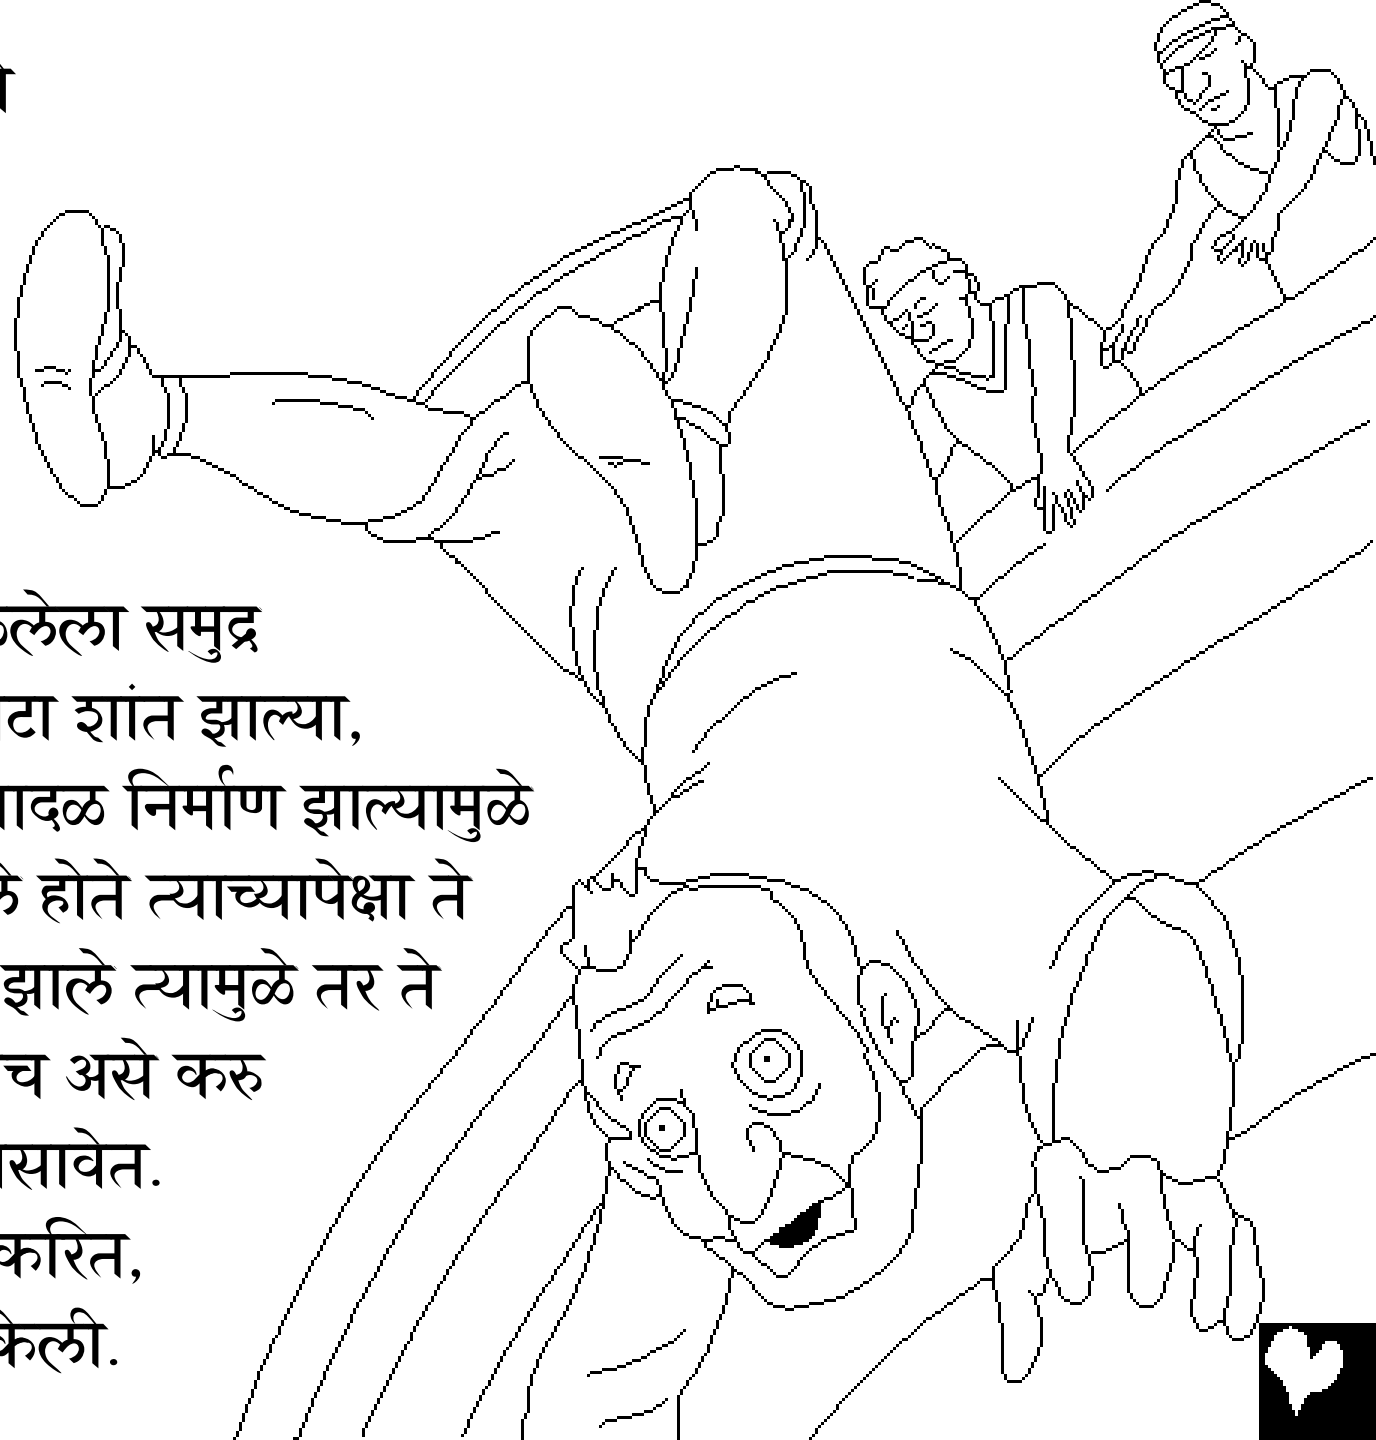 समुद्र
शांत झाल्या,
निर्माण झाल्यामुळे
होते त्याच्यापेक्षा ते
झाले त्यामुळे तर ते
च असे करु
करित,
केली.